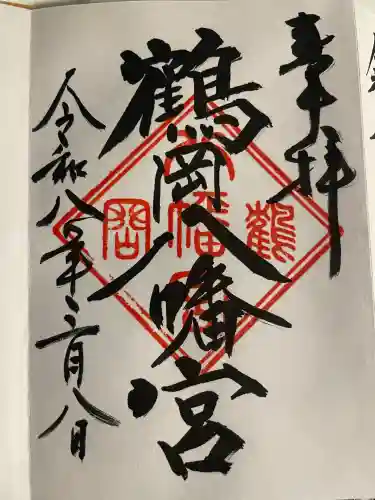 奉拝
鶴岡八幡宮
令和八年二月八日
鶴
八幡宮
岡